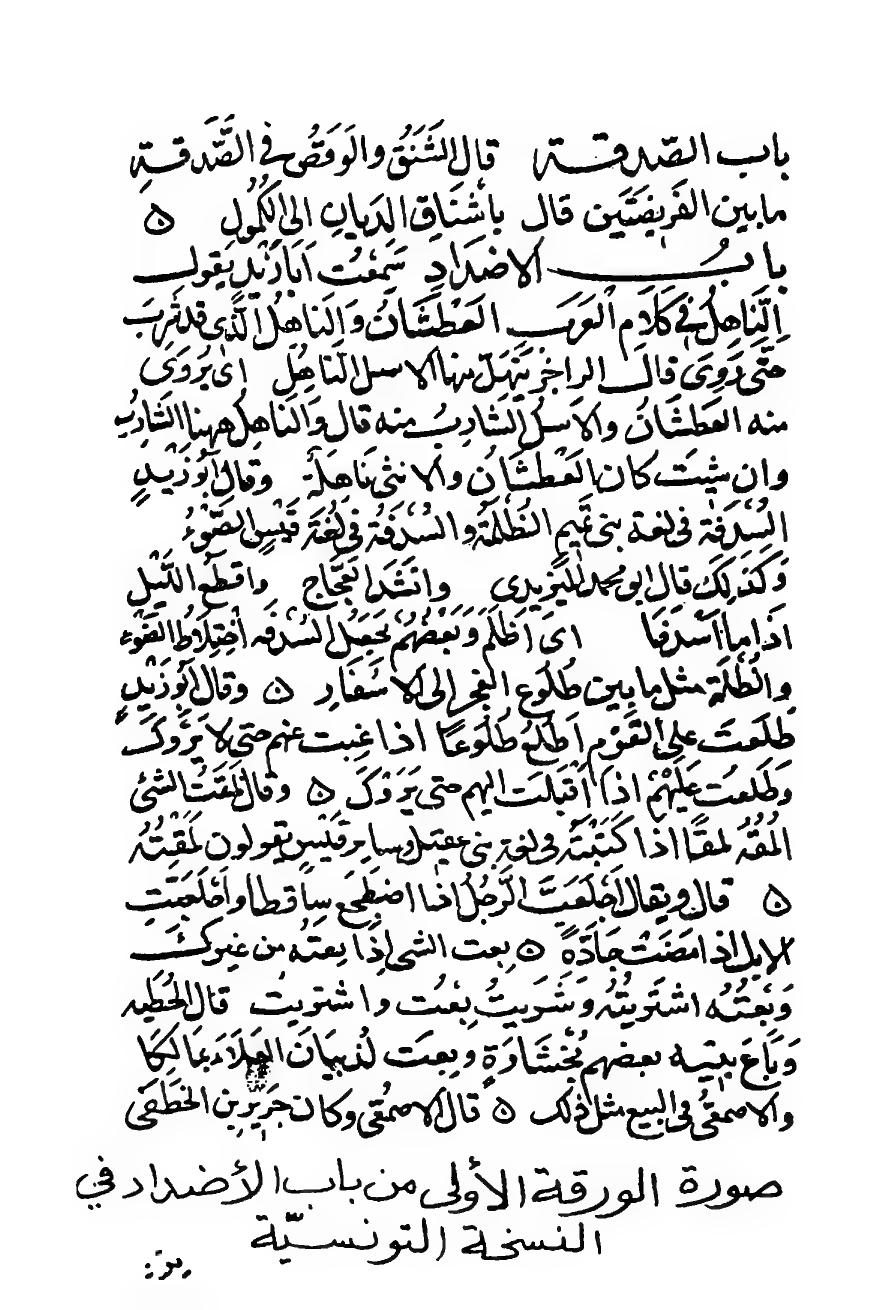 باب الصّدقة قال الشَّنَقُ والوَقَصُ في الصَّدقةِ
ما بين الفَريضَتَين قال بأشْنَاقِ الديات الى الكُمولِ ٥
بابُ الاضدَادِ سَمِعْت اَبَا زَيْدٍ يَقول
النَّاهِلُ في كَلَامِ العَرَب العَطْشَانُ وَالنَاهِلُ الَّذي قد شَرِبَ
حَتَّى رَوِىَ قال الراجِز يَنْهَلُ منها الاسل النَّاهِلُ اى يُرْوَى
منه العَطشَانُ والاَسَلُ الشَّارِبُ منه قال وَالنَاهِلُ ههنا الشارِبُ
وان شِيْتَ كان العَطْشَانُ والانثى نَاهِلَة وقال أَبُو زَيْدٍ
السُدْفَةُ في لغة بنى تميمٍ الظُلْمَةُ والسُدْفَةُ في لُغَةِ قَيْسٍ الضَّوْءُ
وَكَذلِكَ قال ابو محمد اليَزيدى وانشَد العَجَّاج واقطَعُ اللَّيْلَ
اذا ما اَسْدَفَا اى اَظْلَمَ وَبَعضُهُمْ يَجعَلُ السُدْفَه اخْتِلَاط الضَوْءِ
والظُلْمَةِ مثل ما بين طُلُوعِ الفجر الى الاسفَارِ ٥ وقال أَبُو زَيْدٍ
طَلَعتُ على القَوْمِ اَطْلُعُ طُلُوعًا اذا غِبت عنهم حتى لا يَرَوْكَ
وَطَلَعتُ عَلَيْهمْ اذا اَقْبَلتَ اليهم حتى يَرَوْكَ ٥ وقال لَمَقْتُ الشئ
اَلمُقُهُ لَمْقًا اذا كَتَبْتَهُ في لغةِ بنى عقيل وساير قَيْسٍ يقولون لَمَقْتُهُ
٥ قال ويقال اجْلَعَبَّ الرَّجُلُ اذا اضطَجَعَ ساقطا واجْلَعَبَّتِ
الابل اذا مَضَتْ جَادَّةً ٥ بعت الشى إذَا بِعتَهُ من غيرك
وَبِعْتُهُ اشتَرَيْتُه وَشَرَيتُ بِعْت واشتريتُ قال الحُطَيه
وَبَاعَ بنيه بعضهم بُخشَارَةٍ وبعت لذُبيَانَ العَلَاءَ بمَالِكَا
والاصمَعِيُّ في البيع مثل ذلك ٥ قال الاصمَعُى وكان جَرِيْر بن الخطَفَى
صورة الورقة الأولى من باب الأضداد في
النسخة التونسيّة